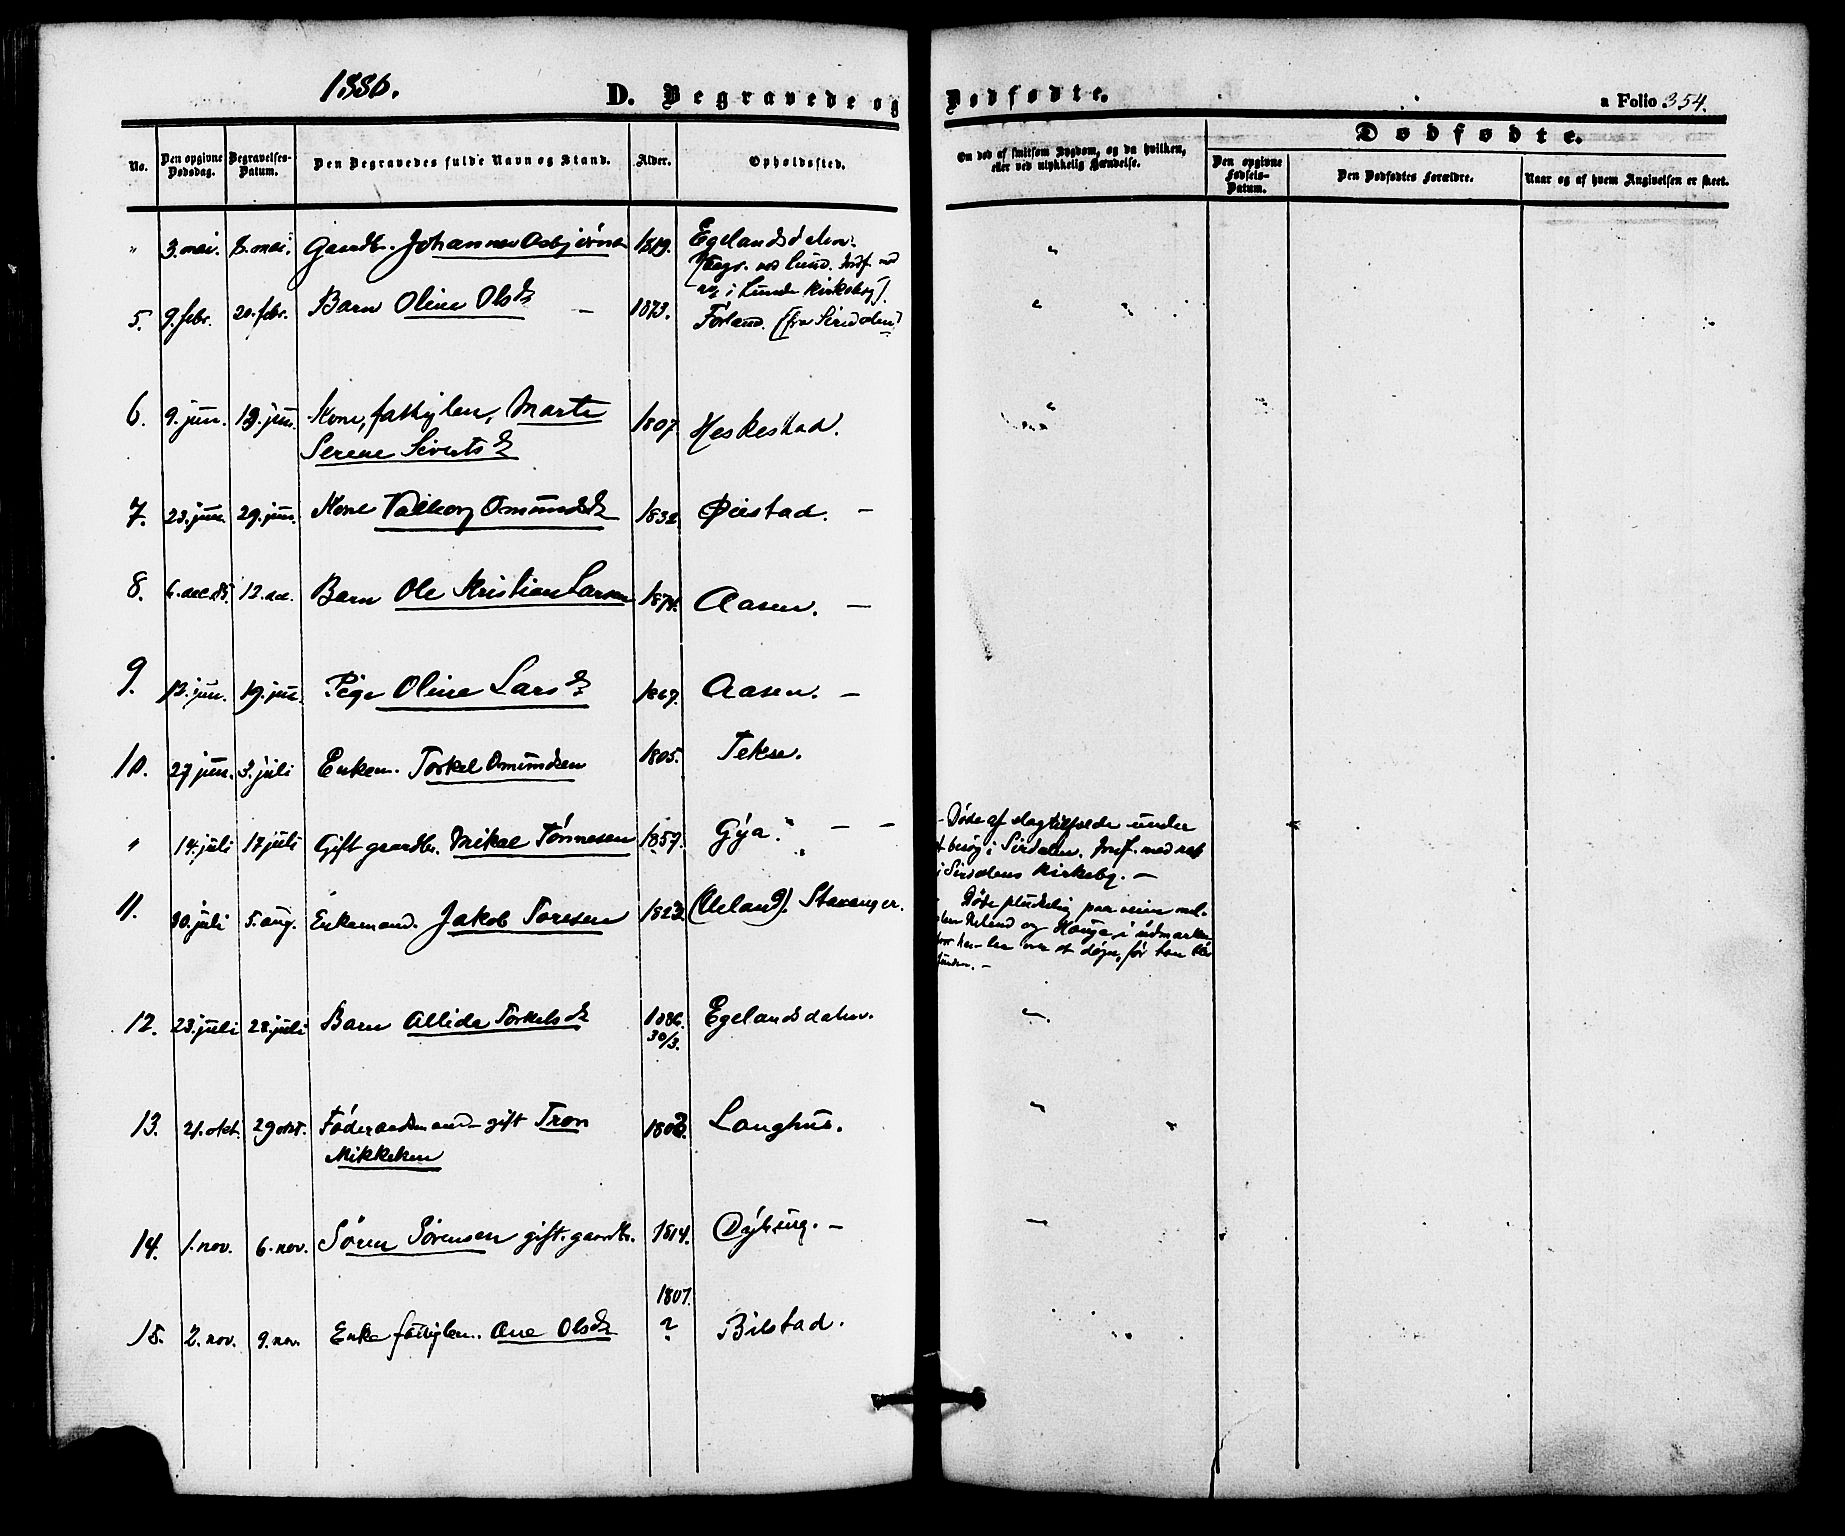 1886.
D. Begravede og Dødfødte.
a Folio 354.
No.
Den opgivne Dødsdag.
Begravelses-Datum.
Den Begravedes fulde Navn og Stand.
Alder.
Opholdssted.
Om død af smitsom Sygdom, og da hvilken,
eller ved ulykkelig Hændelse.
Dødfødte.
Den opgivne Fødsels-Datum.
Den Dødfødtes Forældre.
Naar og af hvem Angivelsen er skeet.
" 3. mai. 8. mai. Gaardb. Johannes Osbjörns 1819. Egelandsdalen.
(Begr. ved Lund. Jordf. med
i Lunde Kirkebog).
5. 9. febr. 20. febr. Barn Oline Olsd. – 1873. Förland. (fra Sirdalen)
6. 9. jun. 19. jun. Kone, fattiglem, Marte 1807. Heskestad.
Serene Sivertsd.
7. 23. jun. 29. jun. Kone Valborg Omundsd. 1832. Øiestad. –
8. 6. dec. 85. 12. dec. Barn Ole Kristian Larsen 1874. Aasen. –
9. 13. jun. 19. jun. Pige Oline Larsd. 1867. Aasen. –
10. 27 jun. 3. juli Enkem. Torkel Omundsen 1805. Tekse.
" 14. juli 17 juli Gift gaardbr. Mikal Tönnesen 1857. Gya. " – –
Döde af slagtilfælde under
besøg i Sirdalen. Jordf. med
i Sirdalens Kirkebg. –
11. 30. juli 5. aug. Enkemand. Jakob Toresen 1823. (Ueland). Stavanger.
Döde pludselig paa veien mel-
len Ueland og Hauge, i udmarken
over et døgn, før han blev
funden. –
12. 23. juli 28. juli Barn Allida Torkelsd. 1886. Egelandsdalen.
30/3.
13. 21. okt. 29 okt. Föderaadsmand gift Tron 1802. Langhus.
Mikkelsen
14. 1. nov. 6. nov. Sören Sörensen gift. gaardbr. 1814. Dybing. –
15. 2. nov. 9. nov. Enke fattiglem. Ane Olsd. 1807. ? Bilstad.